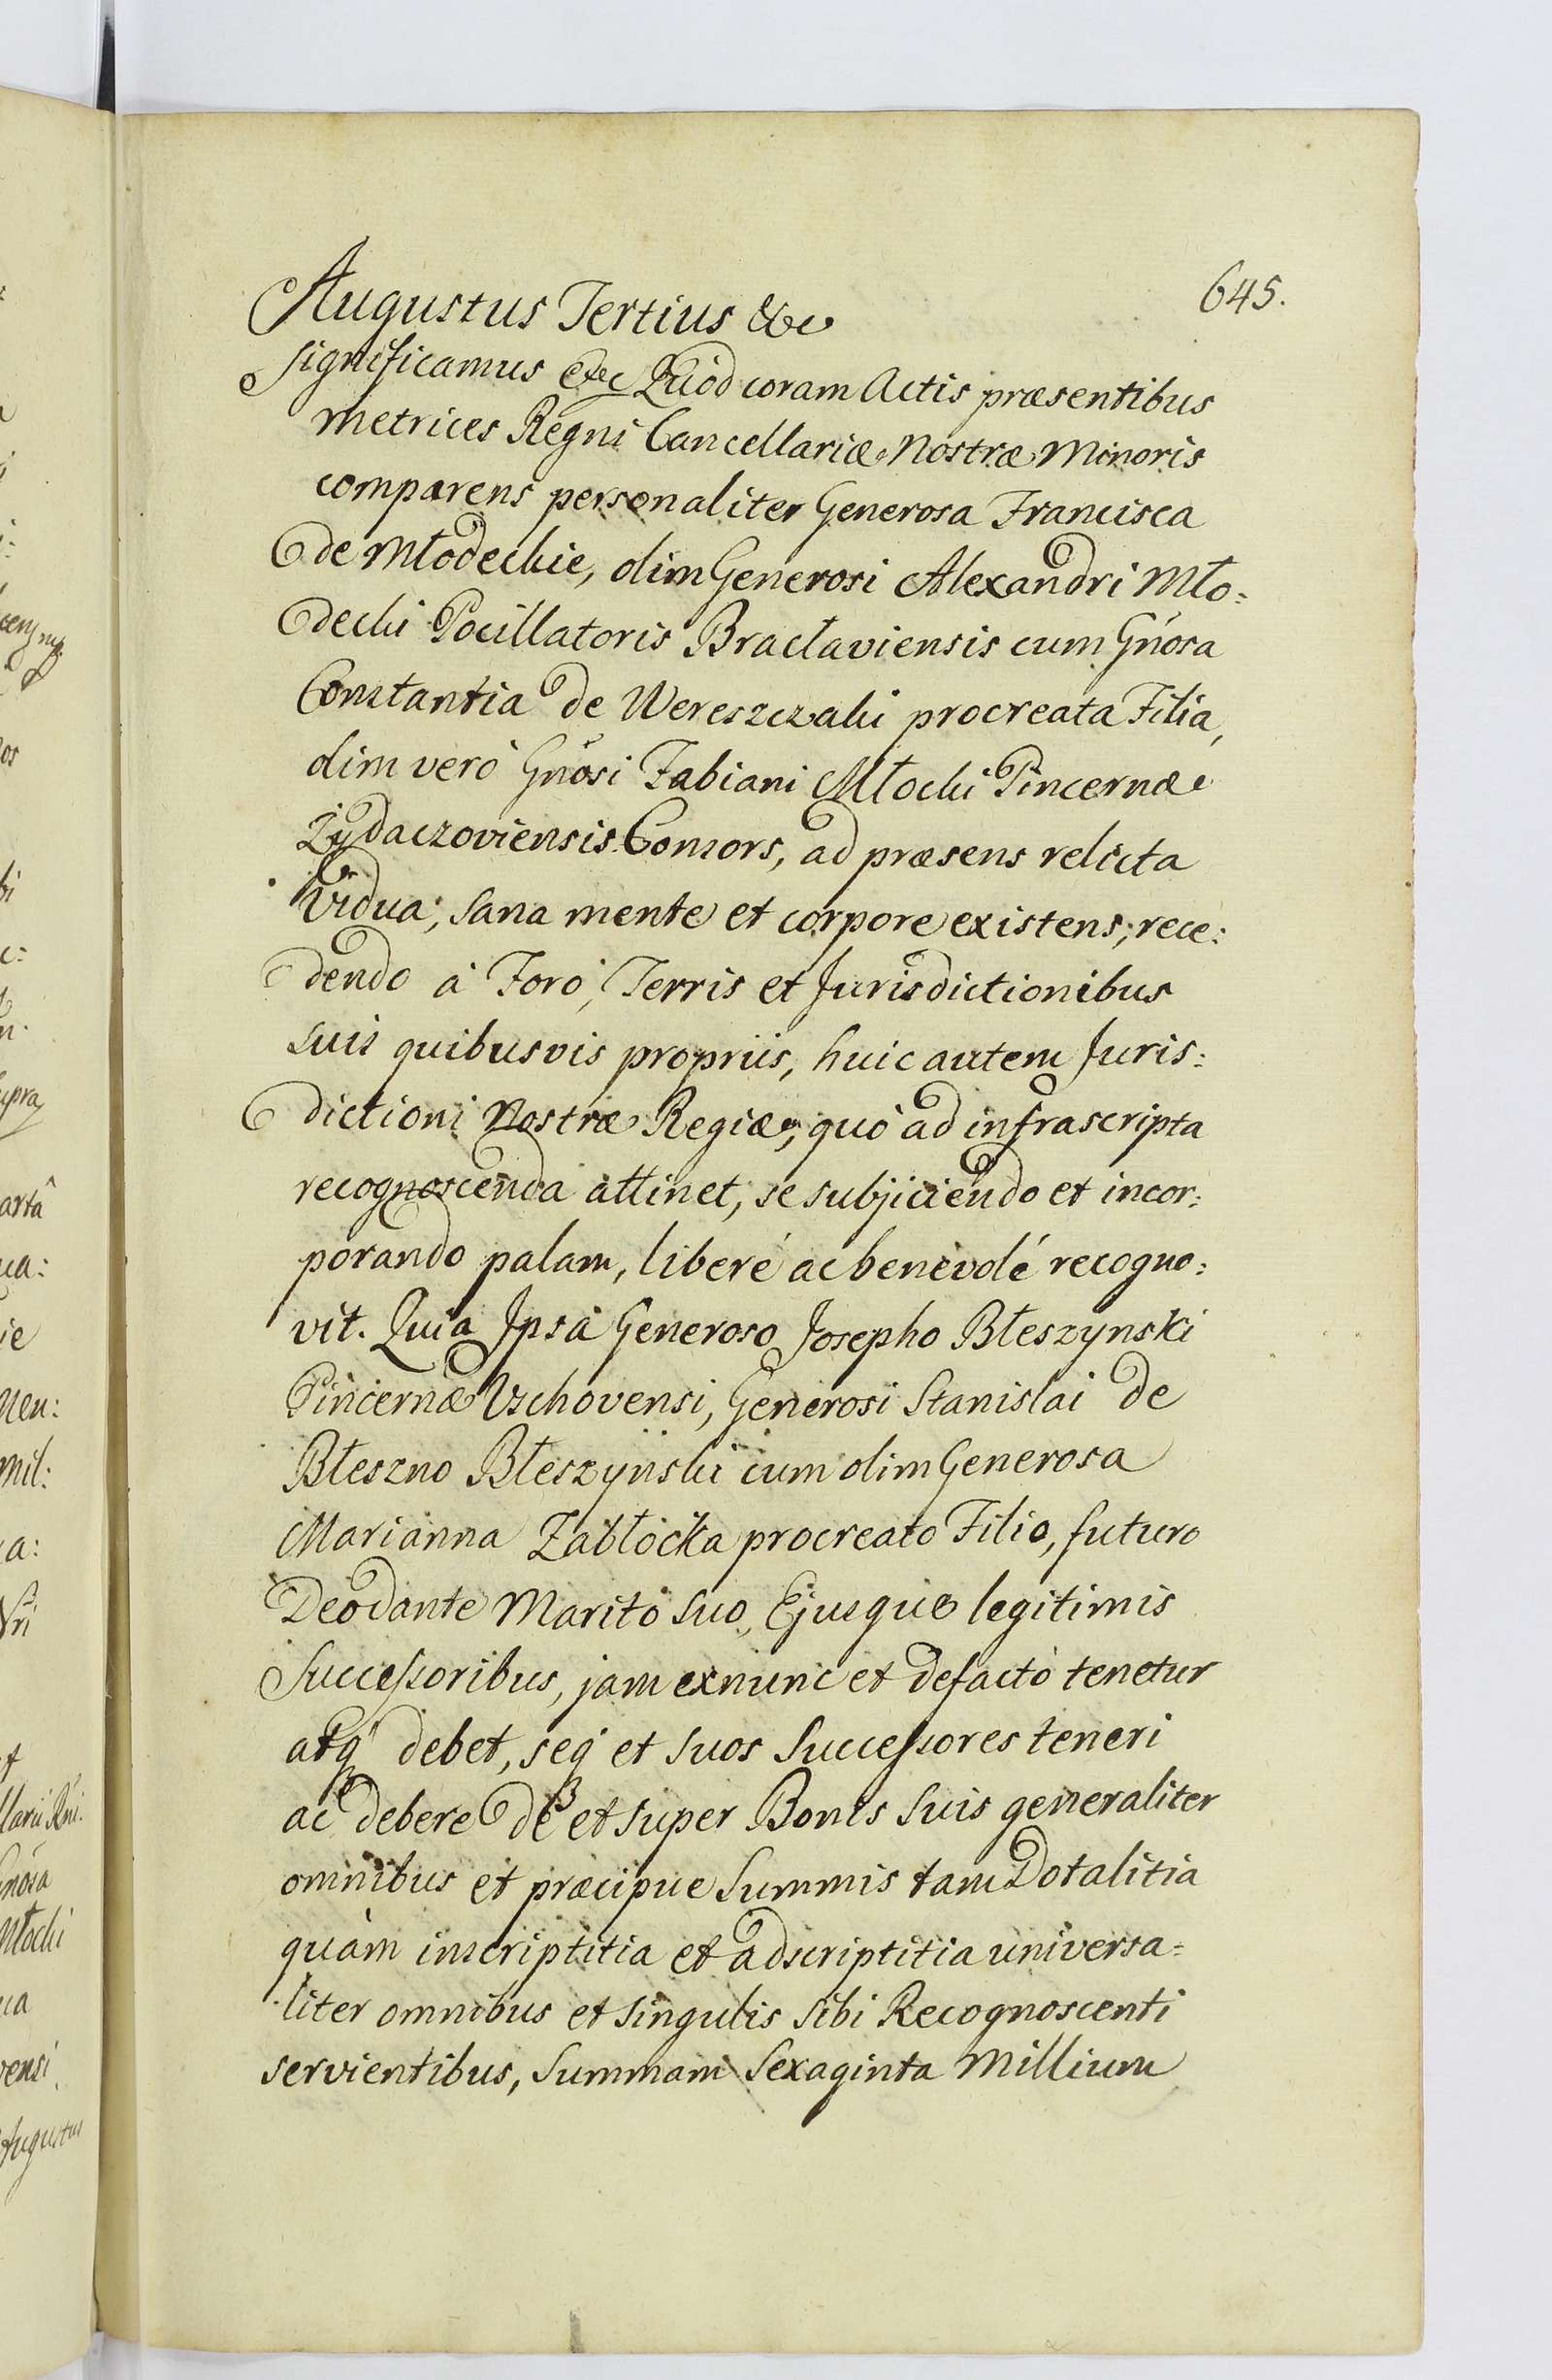 645.
Augustus Tertius &c
significamus etc Quod coram Actis præsentibus
Metrices Regni Cancellariæ Nostræ Minoris
comparens personaliter Generosa Francisca
de Młodeckie, olim Generosi Alexandri Mło:
decki Pocillatoris Bracłaviensis cum Gnosa
Constantia de Wereszczaki procreata Filia,
olim verò Gnosi Fabiani Młocki Pincernæ
Zydaczoviensis Consors, ad præsens relicta
Vidua; sana mente et corpore existens; rece:
dendo à Foro, Terris et Jurisdictionibus
suis quibusvis propriis, huic autem Juris:
dictioni Nostræ Regiæ, quò ad infrascripta
recognoscenda attinet, se subjiciendo et incor:
porando palam, liberé ac benevolé recogno:
vit. Quia Ipsa Generoso Josepho Błeszynski
Pincernæ Vschovensi, Generosi Stanislai de
Błeszno Błeszyński cum olim Generosa
Marianna Zabłocka procreato Filio, futuro
Deodante Marito suo, Ejusque legitimis
Successoribus, jam exnunc et defacto tenetur
atq debet, seq et suos Successores teneri
ac debere de et super Bonis suis generaliter
omnibus et præcipue Summis tam Dotalitia
quàm inscriptitia et adscriptitia universa=
liter omnibus et singulis sibi Recognoscenti
servientibus, Summam Sexaginta Millium